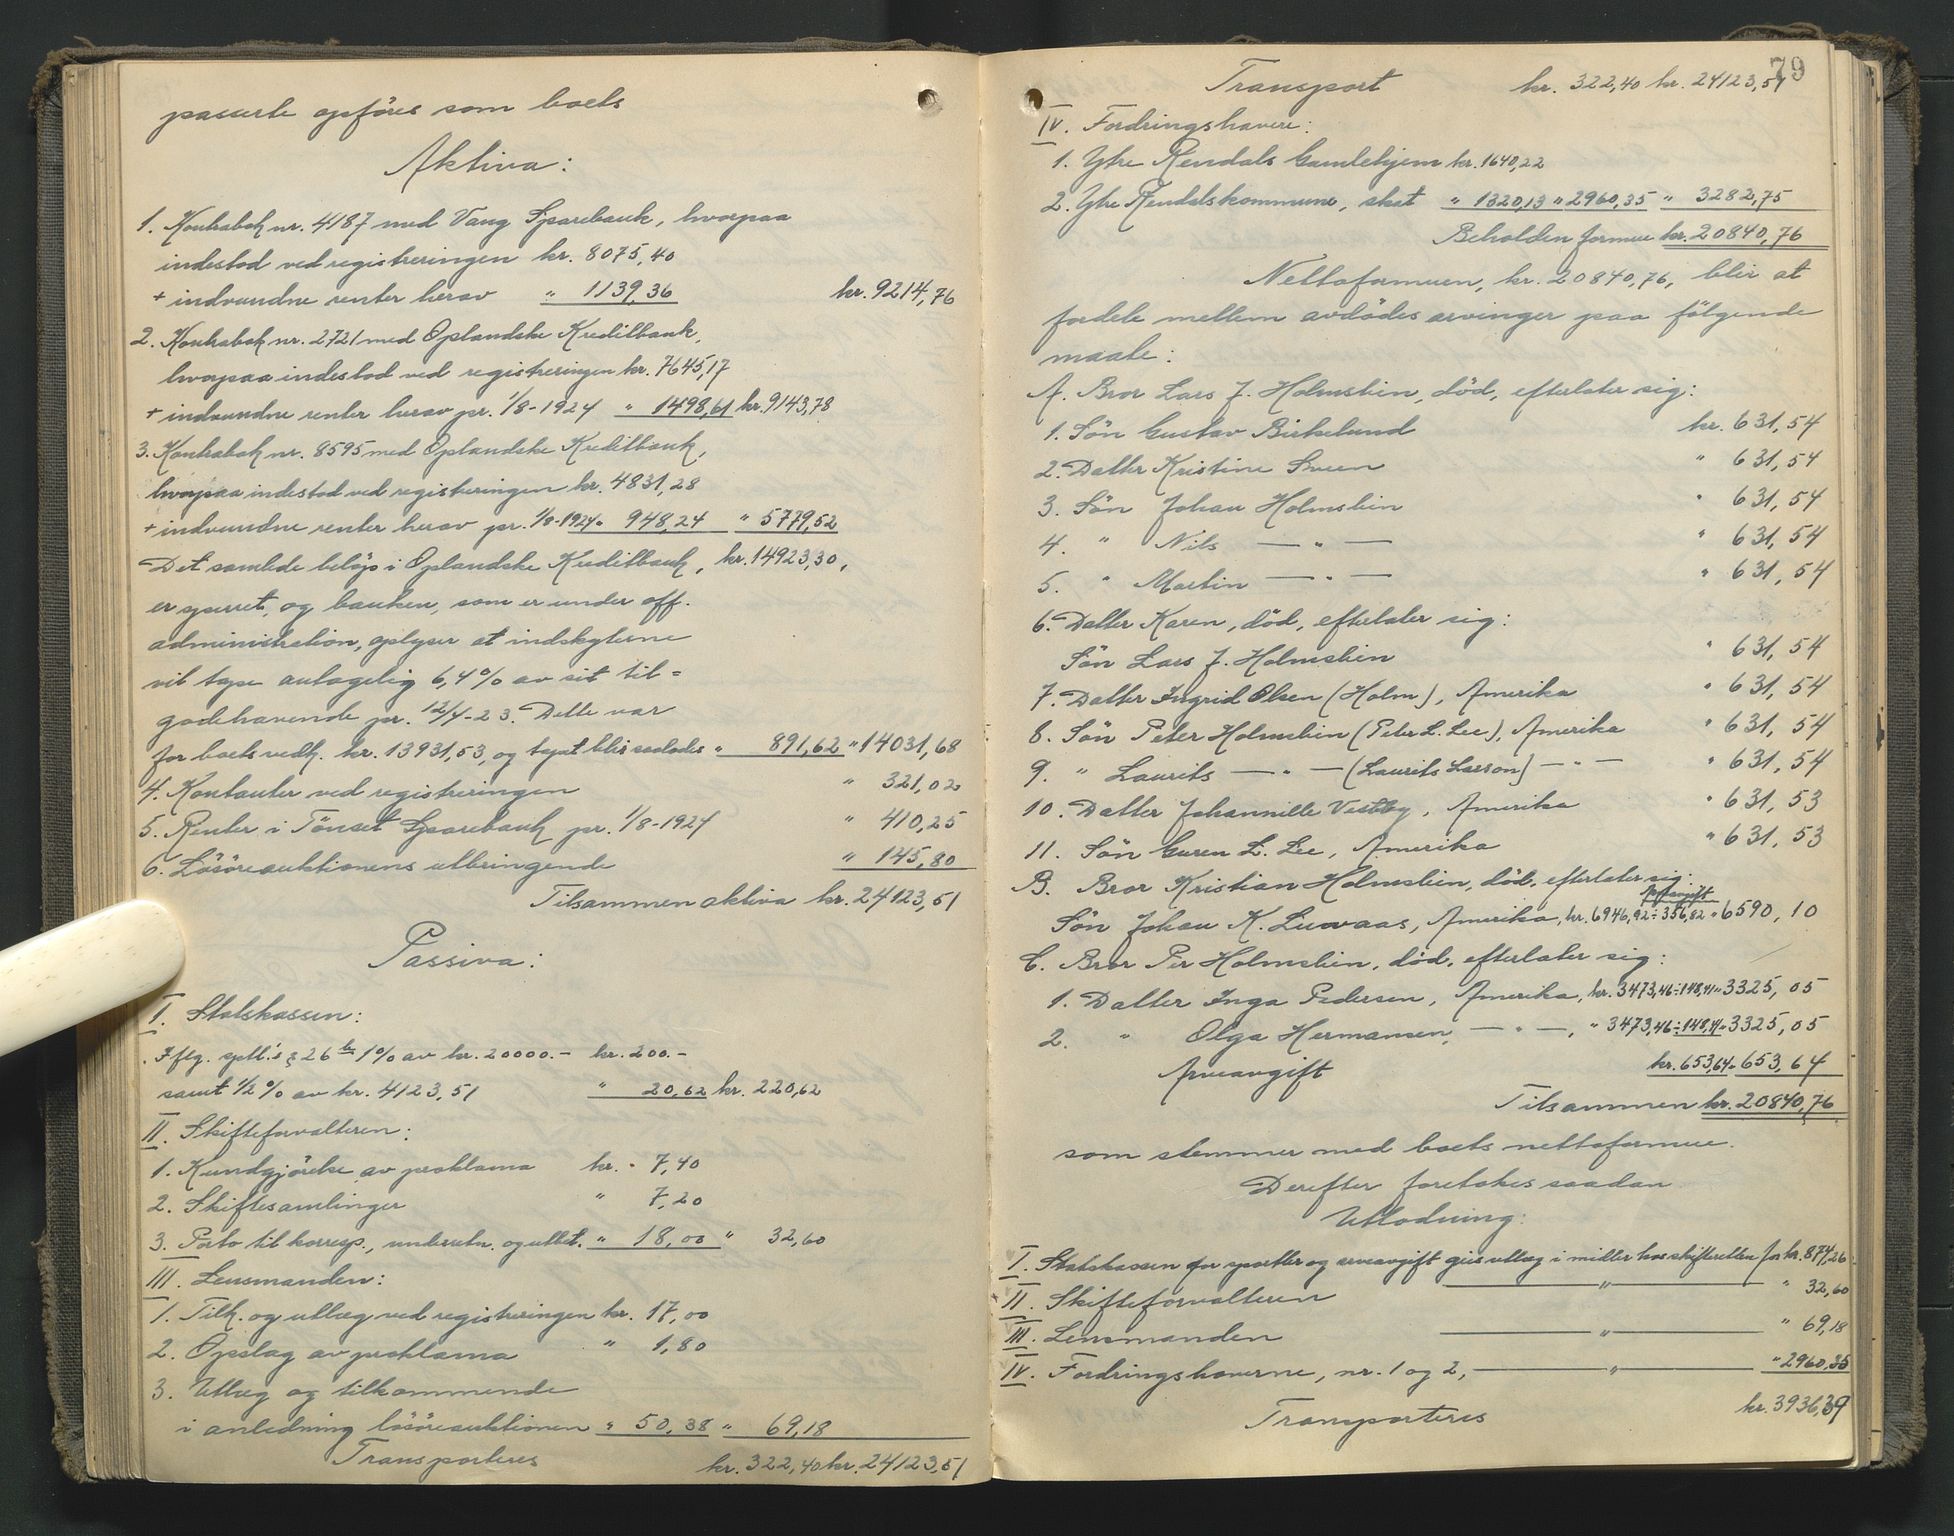 passerte opföres som boets
Aktiva:
1. Kontrabok nr. 4187 med Vang Sparebank, hvorpaa
indestod ved registreringen kr. 8075,40
+ indvundne renter herav " 1139,36 kr. 9214,76
2. Kontrabok nr. 2721 med Oplandske Kreditbank,
hvorpaa indestod ved registreringen kr. 7645,17
+ indvundne renter herav pr. 1/8-1924 " 1498,61 kr. 9143,78
3. Kontrabok nr. 8595 med Oplandske Kreditbank,
hvorpaa indestod ved registreringen kr. 4831,28
+ indvundne renter herav pr. 1/8-1924 " 948,24 " 5779,52
Det samlede beløp i Oplandske Kreditbank, kr. 14923,30,
er sperret, og banken, som er under off.
administration, oplyser at indskyterne
vil tape antagelig 6,4% av sit til=
godehavende pr. 12/4-23. Dette var
for boets vedk. kr. 13931,53, og tapet blir saaledes " 891,62 " 14031,68
4. Kontanter ved registreringen " 321,02
5. Renter i Tönset Sparebank pr. 1/8-1924 " 410,25
6. Lösöreauktionens utbringende " 145,80
Tilsammen aktiva kr. 24123,51
Passiva:
I. Statskassen:
Iflg. sptl.'s § 26 1% av kr. 20000.- kr. 200.-
samt 1/2% av kr. 4123,51 " 20,62 kr. 220,62
II. Skifteforvalteren:
1. Kundgjörelse av proklama kr. 7,40
2. Skiftesamlinger " 7,20
3. Porto til korresp., underretn. og utbet. " 18,00 " 32,60
III. Lensmanden:
1. Tilk. og utlæg ved registreringen kr. 17,00
2. Opslag av proklama " 1,80
3. Utlæg og tilkommende
i anledning lösöreauktionen " 50,38 " 69,18
Transporteres kr. 322,40 kr. 24123,51
79
Transport kr. 322,40 kr. 24123,51
IV. Fordringshavere:
1. Ytre Rendals Gamlehjem kr. 1640,22
2. Ytre Rendalskommune, skat " 1320,13 " 2960,35 " 3282,75
Beholden formue kr. 20840,76
Nettoformuen, kr. 20840,76, blir at
fordele mellem avdödes arvinger paa fölgende
maate:
A. Bror Lars J. Holmstien, död, efterlater sig:
1. Sön Gustav Birkelund kr. 631,54
2. Datter Kristine Sveen " 631,54
3. Sön Johan Holmstien " 631,54
4. " Nils — " — " 631,54
5. " Martin — " — " 631,54
6. Datter Karen, död, efterlater sig:
Sön Lars J. Holmstien " 631,54
7. Datter Ingrid Olsen (Holm), Amerika " 631,54
8. Sön Peter Holmstien (Peter L. Lee), Amerika " 631,54
9. " Laurits — " — (Laurits Larson) — " — " 631,54
10. Datter Johannille Vestby, Amerika " 631,53
11. Sön Guren L. Lee, Amerika " 631,53
B. Bror Kristian Holmstien, död, efterlater sig:
Arveavgift
Sön Johan K. Luovaas, Amerika, kr. 6946,92 ÷ 356,82 " 6590,10
C. Bror Per Holmstien, död, efterlater sig:
1. Datter Inga Pedersen, Amerika, kr. 3473,46 ÷ 148,41 " 3325,05
2. " Olga Hermansen, — " —, " 3473,46 ÷ 148,41 " 3325,05
Arveavgift kr. 653,64 " 653,64
Tilsammen kr. 20840,76
som stemmer med boets nettoformue.
Derefter foretokes saadan
Utlodning:
I. Statskassen for sportler og arveavgift gies utlæg i midler hos skifteretten for kr. 874,26
II. Skifteforvalteren — " — " 32,60
III. Lensmanden — " — " 69,18
IV. Fordringshaverne, nr. 1 og 2, — " — " 2960,35
Transporteres kr. 3936,39